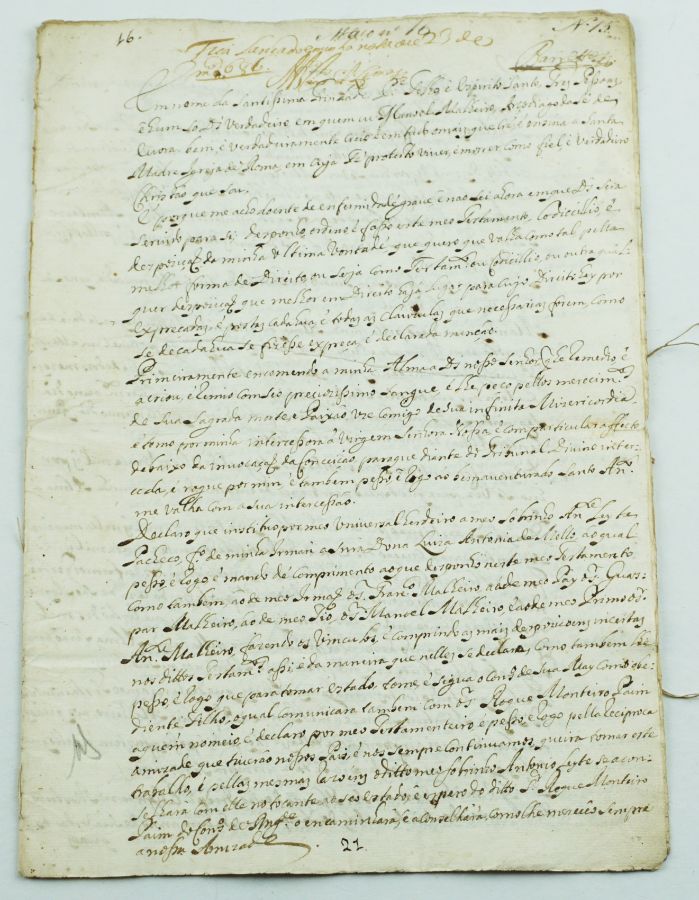 16. Maço nº 10 Nº 13.
23 de
Em nome da Santissima Trindade Pe. Filho, e Espirito Santo, Tres Pessoas
e hum so Ds. Verdadeiro em quem eu Manoel Malheiro, Arcediago da Sé de
Evora bem, e verdadeiramente creio em tudo o mais que tem e ensina a Santa
Madre Igreja de Roma, em cuja fé protesto viver, e morrer como fiel, e verdadeiro
Christão que sou.
E porque me acho doente de enfermidade grave e não sei a hora em que Ds. será
servido para si; desponho, ordeno, e faço este meu Testamento, Codicillio, e
despoziçaõ da minha ultima vontade que quero que valha como tal pella
melhor forma de Direito, ou seja como Testamto. ou Codicillio, ou outra qual
quer despoziçaõ que melhor em Direito haja lugar para cujo Direito hey por
expreçadas e postas cada hua, e todas as clauzulas que necessarias forem, como
se de cada hua se fizesse expreça, e declarada mençaõ.
Primeiramente encomendo a minha Alma a Ds. nosso Senhor que
a criou, e remio com seo preciozissimo sangue e lhe peço pellos merecimtos.
de sua sagrada morte e Paixão uze comigo de sua infinita Misericordea
e tomo por minha intercessora a Virgem Senhora Nossa, e com particular affecto
debaixo da invocaçaõ da Conceiçaõ, para que diante do Tribunal Divino inter-
ceda, e rogue por mim e tambem peço, e rogo ao bemaventurado Santo Anto.
me valha com a sua intercessão.
Declaro que instituo por meo universal herdeiro a meo Sobrinho Anto. Leyte
Pacheco, fo. de minha Irmãa a Snra Dona Luiza Antonia de Mello, ao qual
pesso, e rogo, e mando dê comprimento ao que desponho neste meo Testamento
como tambem, ao de meo Irmaõ o Sr. Franco. Malheiro, ao de meo Pay o Sr. Guas-
par Malheiro, ao de meo Tio, o Sr. Manoel Malheiro, e ao de meo Primo o Sr.
Anto. Malheiro, fazendo os Vinculos, e comprindo as mais despoziçoens incertas
nos dittos Testamtos. assi, e da maneira que nelles se declara, como tambem lhe
pesso, e rogo que para tomar estado, tome e sigua o consº de sua May como obe-
diente filho, o qual comunicará tambem com o Sr. Roque Monteiro Paim
a quem nomeio, e declaro por meo Testamenteiro e pesso, e rogo pella reciproca
amizade que tiverão nossos Pais, e nos sempre continuamos, queira tomar este
trabalho, e pellas mesmas razoens o ditto meo sobrinho Antonio Leyte se acon-
selhará com elle no tocante ao seo estado, e espero do ditto Sr. Roque Monteiro
Paim o encaminhará, e aconselhará, como lhe mereceo sempre
a nossa Amizade
21